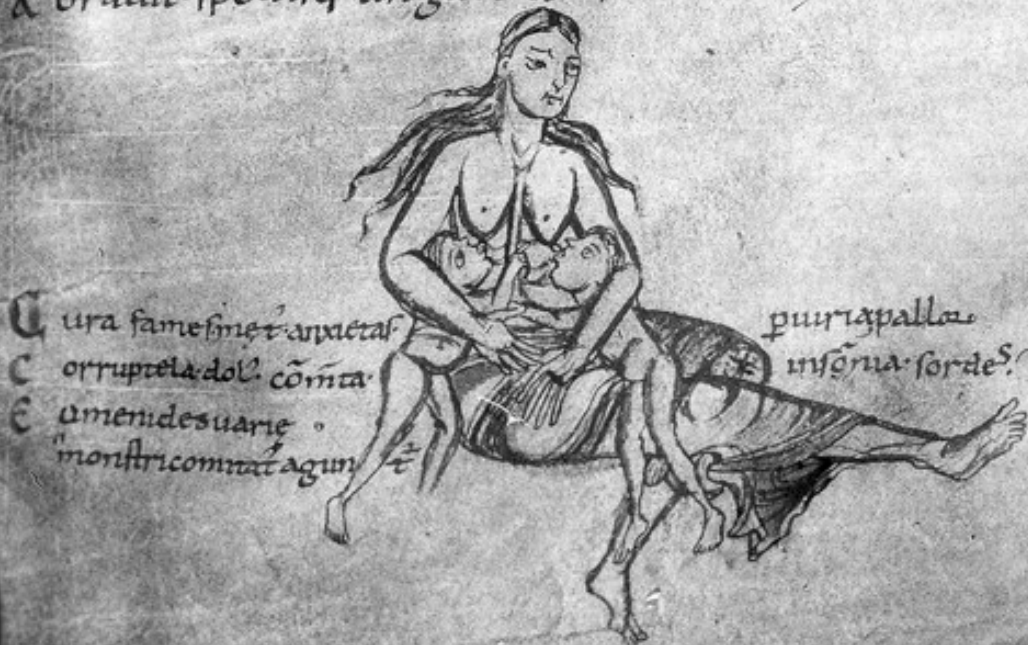 Cura fames met᛫ anxietas p̲iuria pallor
Corruptela·dol᛫ cōm̄ta· insōnia·sordes.
Eumenides uarie
monstri comitat᛫ agunt᛫